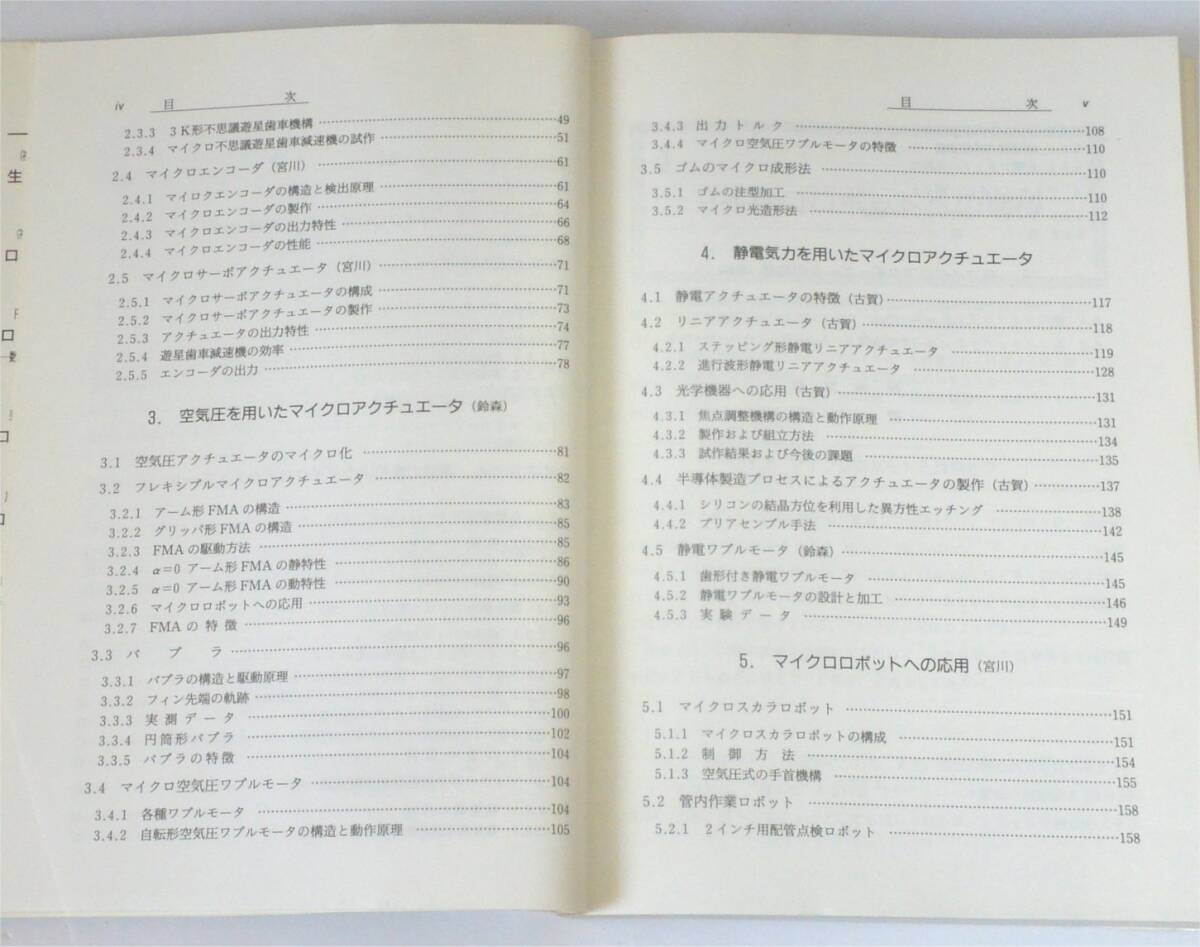 iv 目次
2.3.3 3K形不思議遊星歯車機構 49
2.3.4 マイクロ不思議遊星歯車減速機の試作 51
2.4 マイクロエンコーダ（宮川） 61
2.4.1 マイロクエンコーダの構造と検出原理 61
2.4.2 マイクロエンコーダの製作 64
2.4.3 マイクロエンコーダの出力特性 66
2.4.4 マイクロエンコーダの性能 68
2.5 マイクロサーボアクチュエータ（宮川） 71
2.5.1 マイクロサーボアクチュエータの構成 71
2.5.2 マイクロサーボアクチュエータの製作 73
2.5.3 アクチュエータの出力特性 74
2.5.4 遊星歯車減速機の効率 77
2.5.5 エンコーダの出力 78
3. 空気圧を用いたマイクロアクチュエータ（鈴森）
3.1 空気圧アクチュエータのマイクロ化 81
3.2 フレキシブルマイクロアクチュエータ 82
3.2.1 アーム形FMAの構造 83
3.2.2 グリッパ形FMAの構造 85
3.2.3 FMAの駆動方法 85
3.2.4 α=0 アーム形FMAの静特性 86
3.2.5 α=0 アーム形FMAの動特性 90
3.2.6 マイクロロボットへの応用 93
3.2.7 FMAの特徴 96
3.3 バブラ 96
3.3.1 バブラの構造と駆動原理 97
3.3.2 フィン先端の軌跡 98
3.3.3 実測データ 100
3.3.4 円筒形バブラ 102
3.3.5 バブラの特徴 104
3.4 マイクロ空気圧ワブルモータ 104
3.4.1 各種ワブルモータ 104
3.4.2 自転形空気圧ワブルモータの構造と動作原理 105
目次 v
3.4.3 出力トルク 108
3.4.4 マイクロ空気圧ワブルモータの特徴 110
3.5 ゴムのマイクロ成形法 110
3.5.1 ゴムの注型加工 110
3.5.2 マイクロ光造形法 112
4. 静電気力を用いたマイクロアクチュエータ
4.1 静電アクチュエータの特徴（古賀） 117
4.2 リニアアクチュエータ（古賀） 118
4.2.1 ステッピング形静電リニアアクチュエータ 119
4.2.2 進行波形静電リニアアクチュエータ 128
4.3 光学機器への応用（古賀） 131
4.3.1 焦点調整機構の構造と動作原理 131
4.3.2 製作および組立方法 134
4.3.3 試作結果および今後の課題 135
4.4 半導体製造プロセスによるアクチュエータの製作（古賀） 137
4.4.1 シリコンの結晶方位を利用した異方性エッチング 138
4.4.2 プリアセンブル手法 142
4.5 静電ワブルモータ（鈴森） 145
4.5.1 歯形付き静電ワブルモータ 145
4.5.2 静電ワブルモータの設計と加工 146
4.5.3 実験データ 149
5. マイクロロボットへの応用（宮川）
5.1 マイクロスカラロボット 151
5.1.1 マイクロスカラロボットの構成 151
5.1.2 制御方法 154
5.1.3 空気圧式の手首機構 155
5.2 管内作業ロボット 158
5.2.1 2インチ用配管点検ロボット 158